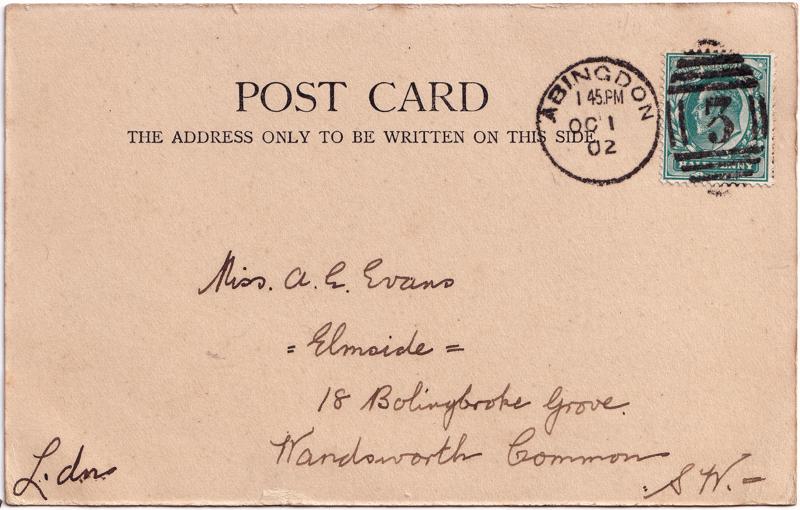 POST CARD
THE ADDRESS ONLY TO BE WRITTEN ON THIS SIDE.
ABINGDON
1 45.PM
OC 1
02
3
HALFPENNY
Miss. A. E. Evans
= Elmside =
18 Bolingbroke Grove.
Wandsworth Common
S.W.-
L.dn